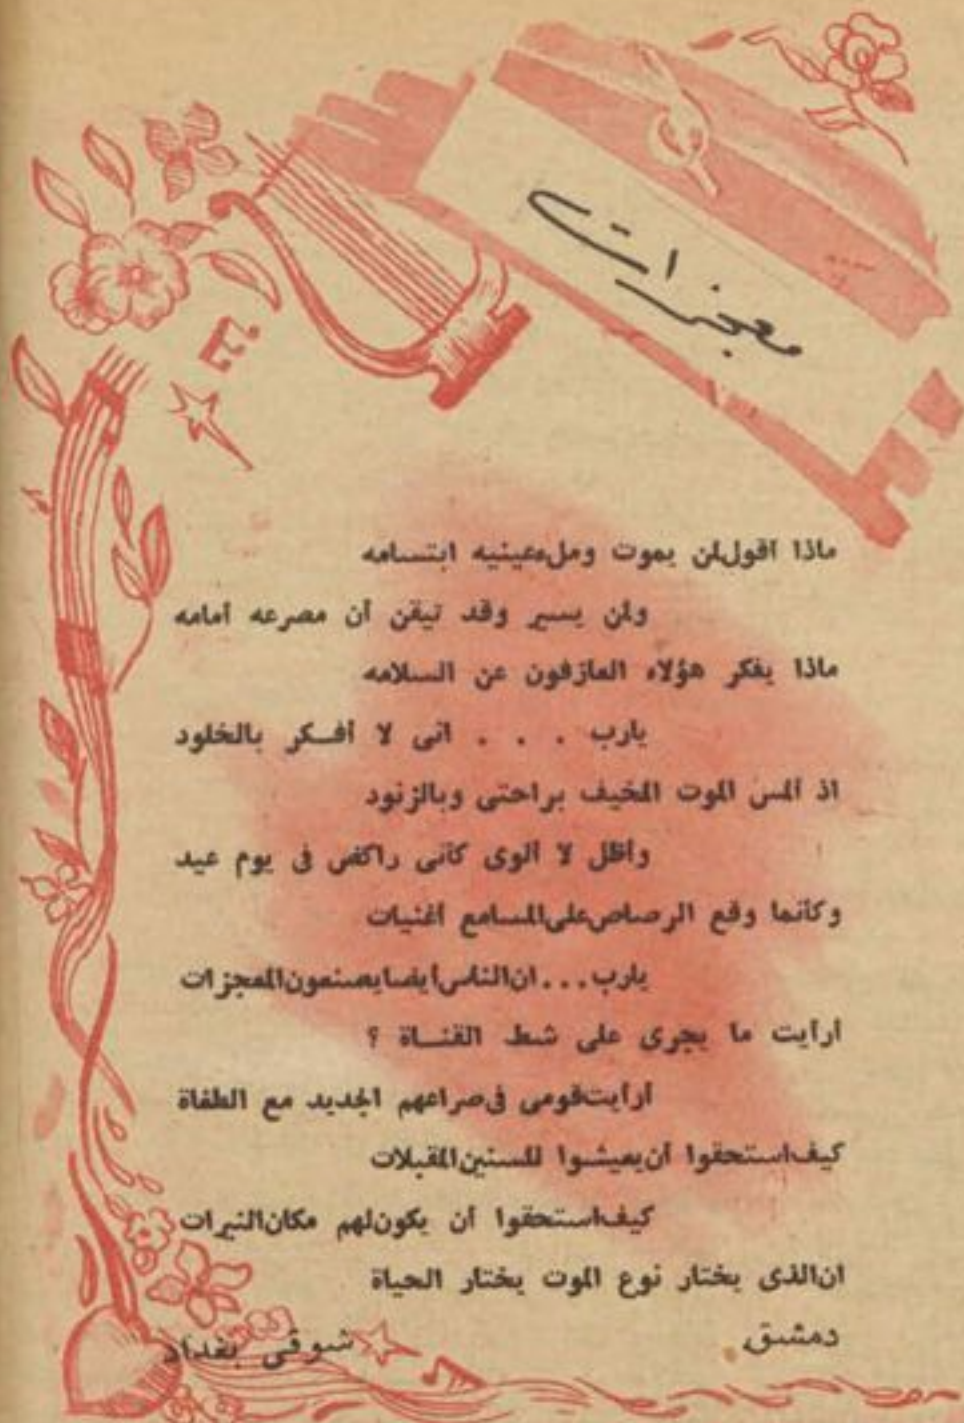 معجزات
ماذا أقول لمن يموت وملء عينيه ابتسامه
ولمن يسير وقد تيقن أن مصرعه أمامه
ماذا يفكر هؤلاء العازفون عن السلامه
يارب . . . انى لا أفكر بالخلود
اذ ألمس الموت المخيف براحتى وبالزنود
وأظل لا ألوى كأنى راكض فى يوم عيد
وكأنما وقع الرصاص على المسامع أغنيات
يارب... ان الناس أيضا يصنعون المعجزات
أرأيت ما يجرى على شط القناة ؟
أرأيت قومى فى صراعهم الجديد مع الطغاة
كيف استحقوا أن يعيشوا للسنين المقبلات
كيف استحقوا أن يكون لهم مكان النيرات
ان الذى يختار نوع الموت يختار الحياة
دمشق
شوقى بغداد